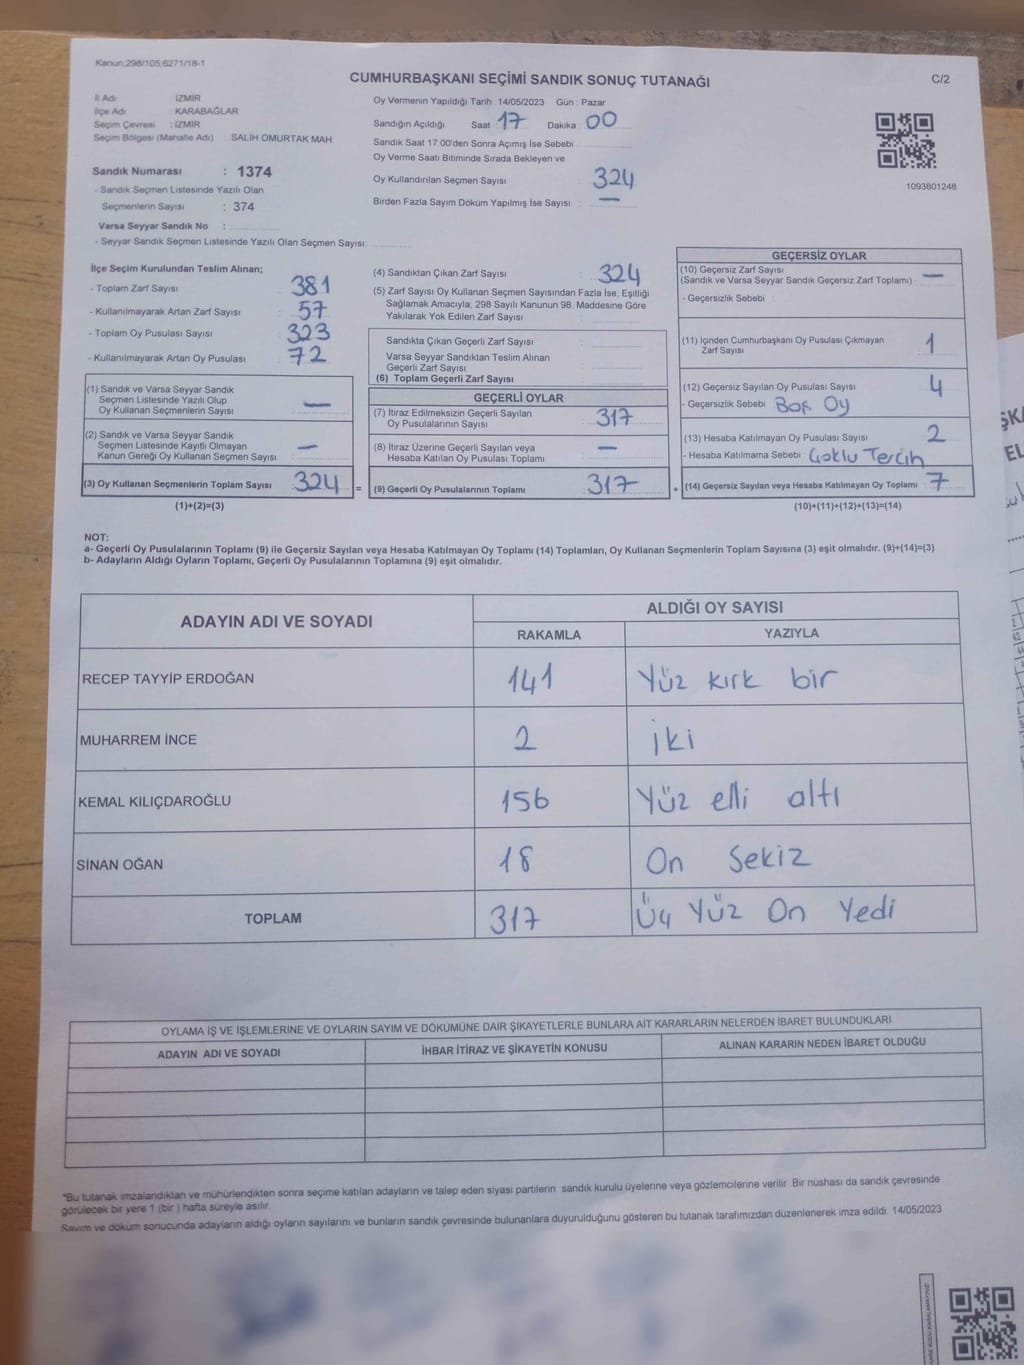 Kanun;298/105,6271/18-1
CUMHURBAŞKANI SEÇİMİ SANDIK SONUÇ TUTANAĞI
C/2
İl Adı : İZMİR
İlçe Adı : KARABAĞLAR
Seçim Çevresi : İZMİR
Seçim Bölgesi (Mahalle Adı) : SALİH OMURTAK MAH.
Sandık Numarası : 1374
- Sandık Seçmen Listesinde Yazılı Olan
Seçmenlerin Sayısı : 374
Varsa Seyyar Sandık No :
- Seyyar Sandık Seçmen Listesinde Yazılı Olan Seçmen Sayısı:
Oy Vermenin Yapıldığı Tarih :14/05/2023 Gün : Pazar
Sandığın Açıldığı Saat 17 Dakika 00
Sandık Saat 17:00'den Sonra Açımış İse Sebebi
Oy Verme Saati Bitiminde Sırada Bekleyen ve
Oy Kullandırılan Seçmen Sayısı : 324
Birden Fazla Sayım Döküm Yapılmış İse Sayısı : —
1093801248
İlçe Seçim Kurulundan Teslim Alınan;
- Toplam Zarf Sayısı 381
- Kullanılmayarak Artan Zarf Sayısı 57
- Toplam Oy Pusulası Sayısı 323
- Kullanılmayarak Artan Oy Pusulası 72
(1) Sandık ve Varsa Seyyar Sandık
Seçmen Listesinde Yazılı Olup
Oy Kullanan Seçmenlerin Sayısı —
(2) Sandık ve Varsa Seyyar Sandık
Seçmen Listesinde Kayıtlı Olmayan
Kanun Gereği Oy Kullanan Seçmen Sayısı —
(3) Oy Kullanan Seçmenlerin Toplam Sayısı 324 =
(1)+(2)=(3)
(4) Sandıktan Çıkan Zarf Sayısı : 324
(5) Zarf Sayısı Oy Kullanan Seçmen Sayısından Fazla İse, Eşitliği
Sağlamak Amacıyla; 298 Sayılı Kanunun 98. Maddesine Göre
Yakılarak Yok Edilen Zarf Sayısı :
Sandıkta Çıkan Geçerli Zarf Sayısı :
Varsa Seyyar Sandıktan Teslim Alınan
Geçerli Zarf Sayısı :
(6) Toplam Geçerli Zarf Sayısı :
GEÇERLİ OYLAR
(7) İtiraz Edilmeksizin Geçerli Sayılan
Oy Pusulalarının Sayısı : 317
(8) İtiraz Üzerine Geçerli Sayılan veya
Hesaba Katılan Oy Pusulası Toplamı : —
(9) Geçerli Oy Pusulalarının Toplamı : 317 +
GEÇERSİZ OYLAR
(10) Geçersiz Zarf Sayısı
(Sandık ve Varsa Seyyar Sandık Geçersiz Zarf Toplamı) : —
- Geçersizlik Sebebi :
(11) İçinden Cumhurbaşkanı Oy Pusulası Çıkmayan
Zarf Sayısı 1
(12) Geçersiz Sayılan Oy Pusulası Sayısı 4
- Geçersizlik Sebebi Boş Oy
(13) Hesaba Katılmayan Oy Pusulası Sayısı 2
- Hesaba Katılmama Sebebi : Çoklu Tercih
(14) Geçersiz Sayılan veya Hesaba Katılmayan Oy Toplamı 7
(10)+(11)+(12)+(13)=(14)
NOT:
a- Geçerli Oy Pusulalarının Toplamı (9) ile Geçersiz Sayılan veya Hesaba Katılmayan Oy Toplamı (14) Toplamları, Oy Kullanan Seçmenlerin Toplam Sayısına (3) eşit olmalıdır. (9)+(14)=(3)
b- Adayların Aldığı Oyların Toplamı, Geçerli Oy Pusulalarının Toplamına (9) eşit olmalıdır.
ADAYIN ADI VE SOYADI
ALDIĞI OY SAYISI
RAKAMLA YAZIYLA
RECEP TAYYİP ERDOĞAN 141 Yüz kırk bir
MUHARREM İNCE 2 İki
KEMAL KILIÇDAROĞLU 156 Yüz elli altı
SİNAN OĞAN 18 On Sekiz
TOPLAM 317 Üç Yüz On Yedi
OYLAMA İŞ VE İŞLEMLERİNE VE OYLARIN SAYIM VE DÖKÜMÜNE DAİR ŞİKAYETLERLE BUNLARA AİT KARARLARIN NELERDEN İBARET BULUNDUKLARI
ADAYIN ADI VE SOYADI İHBAR İTİRAZ VE ŞİKAYETİN KONUSU ALINAN KARARIN NEDEN İBARET OLDUĞU
"Bu tutanak imzalandıktan ve mühürlendikten sonra seçime katılan adayların ve talep eden siyasi partilerin sandık kurulu üyelerine veya gözlemcilerine verilir. Bir nüshası da sandık çevresinde
görülecek bir yere 1 (bir ) hafta süreyle asılır.
Sayım ve döküm sonucunda adayların aldığı oyların sayılarını ve bunların sandık çevresinde bulunanlara duyurulduğunu gösteren bu tutanak tarafımızdan düzenlenerek imza edildi. 14/05/2023